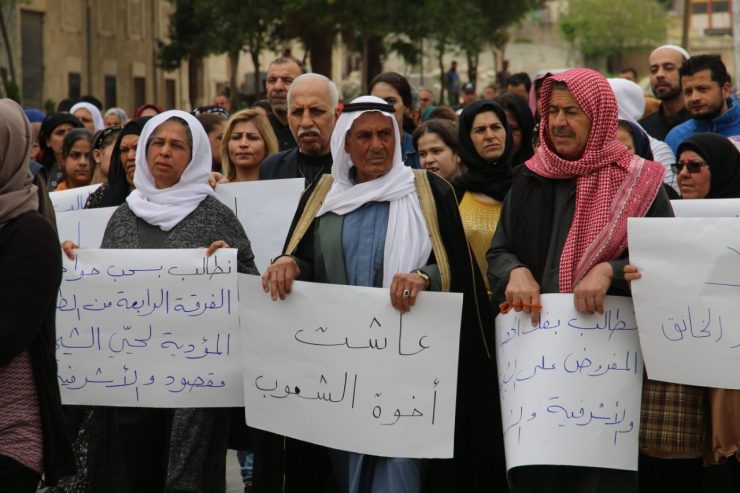 نطالب بسحب حواجز
الفرقة الرابعة من الطرق
المؤدية لحيّي الشيخ
مقصود والأشرفية
عاشت
أخوة الشعوب
نطالب بفك
المفروض على
والأشرفية
الخانق